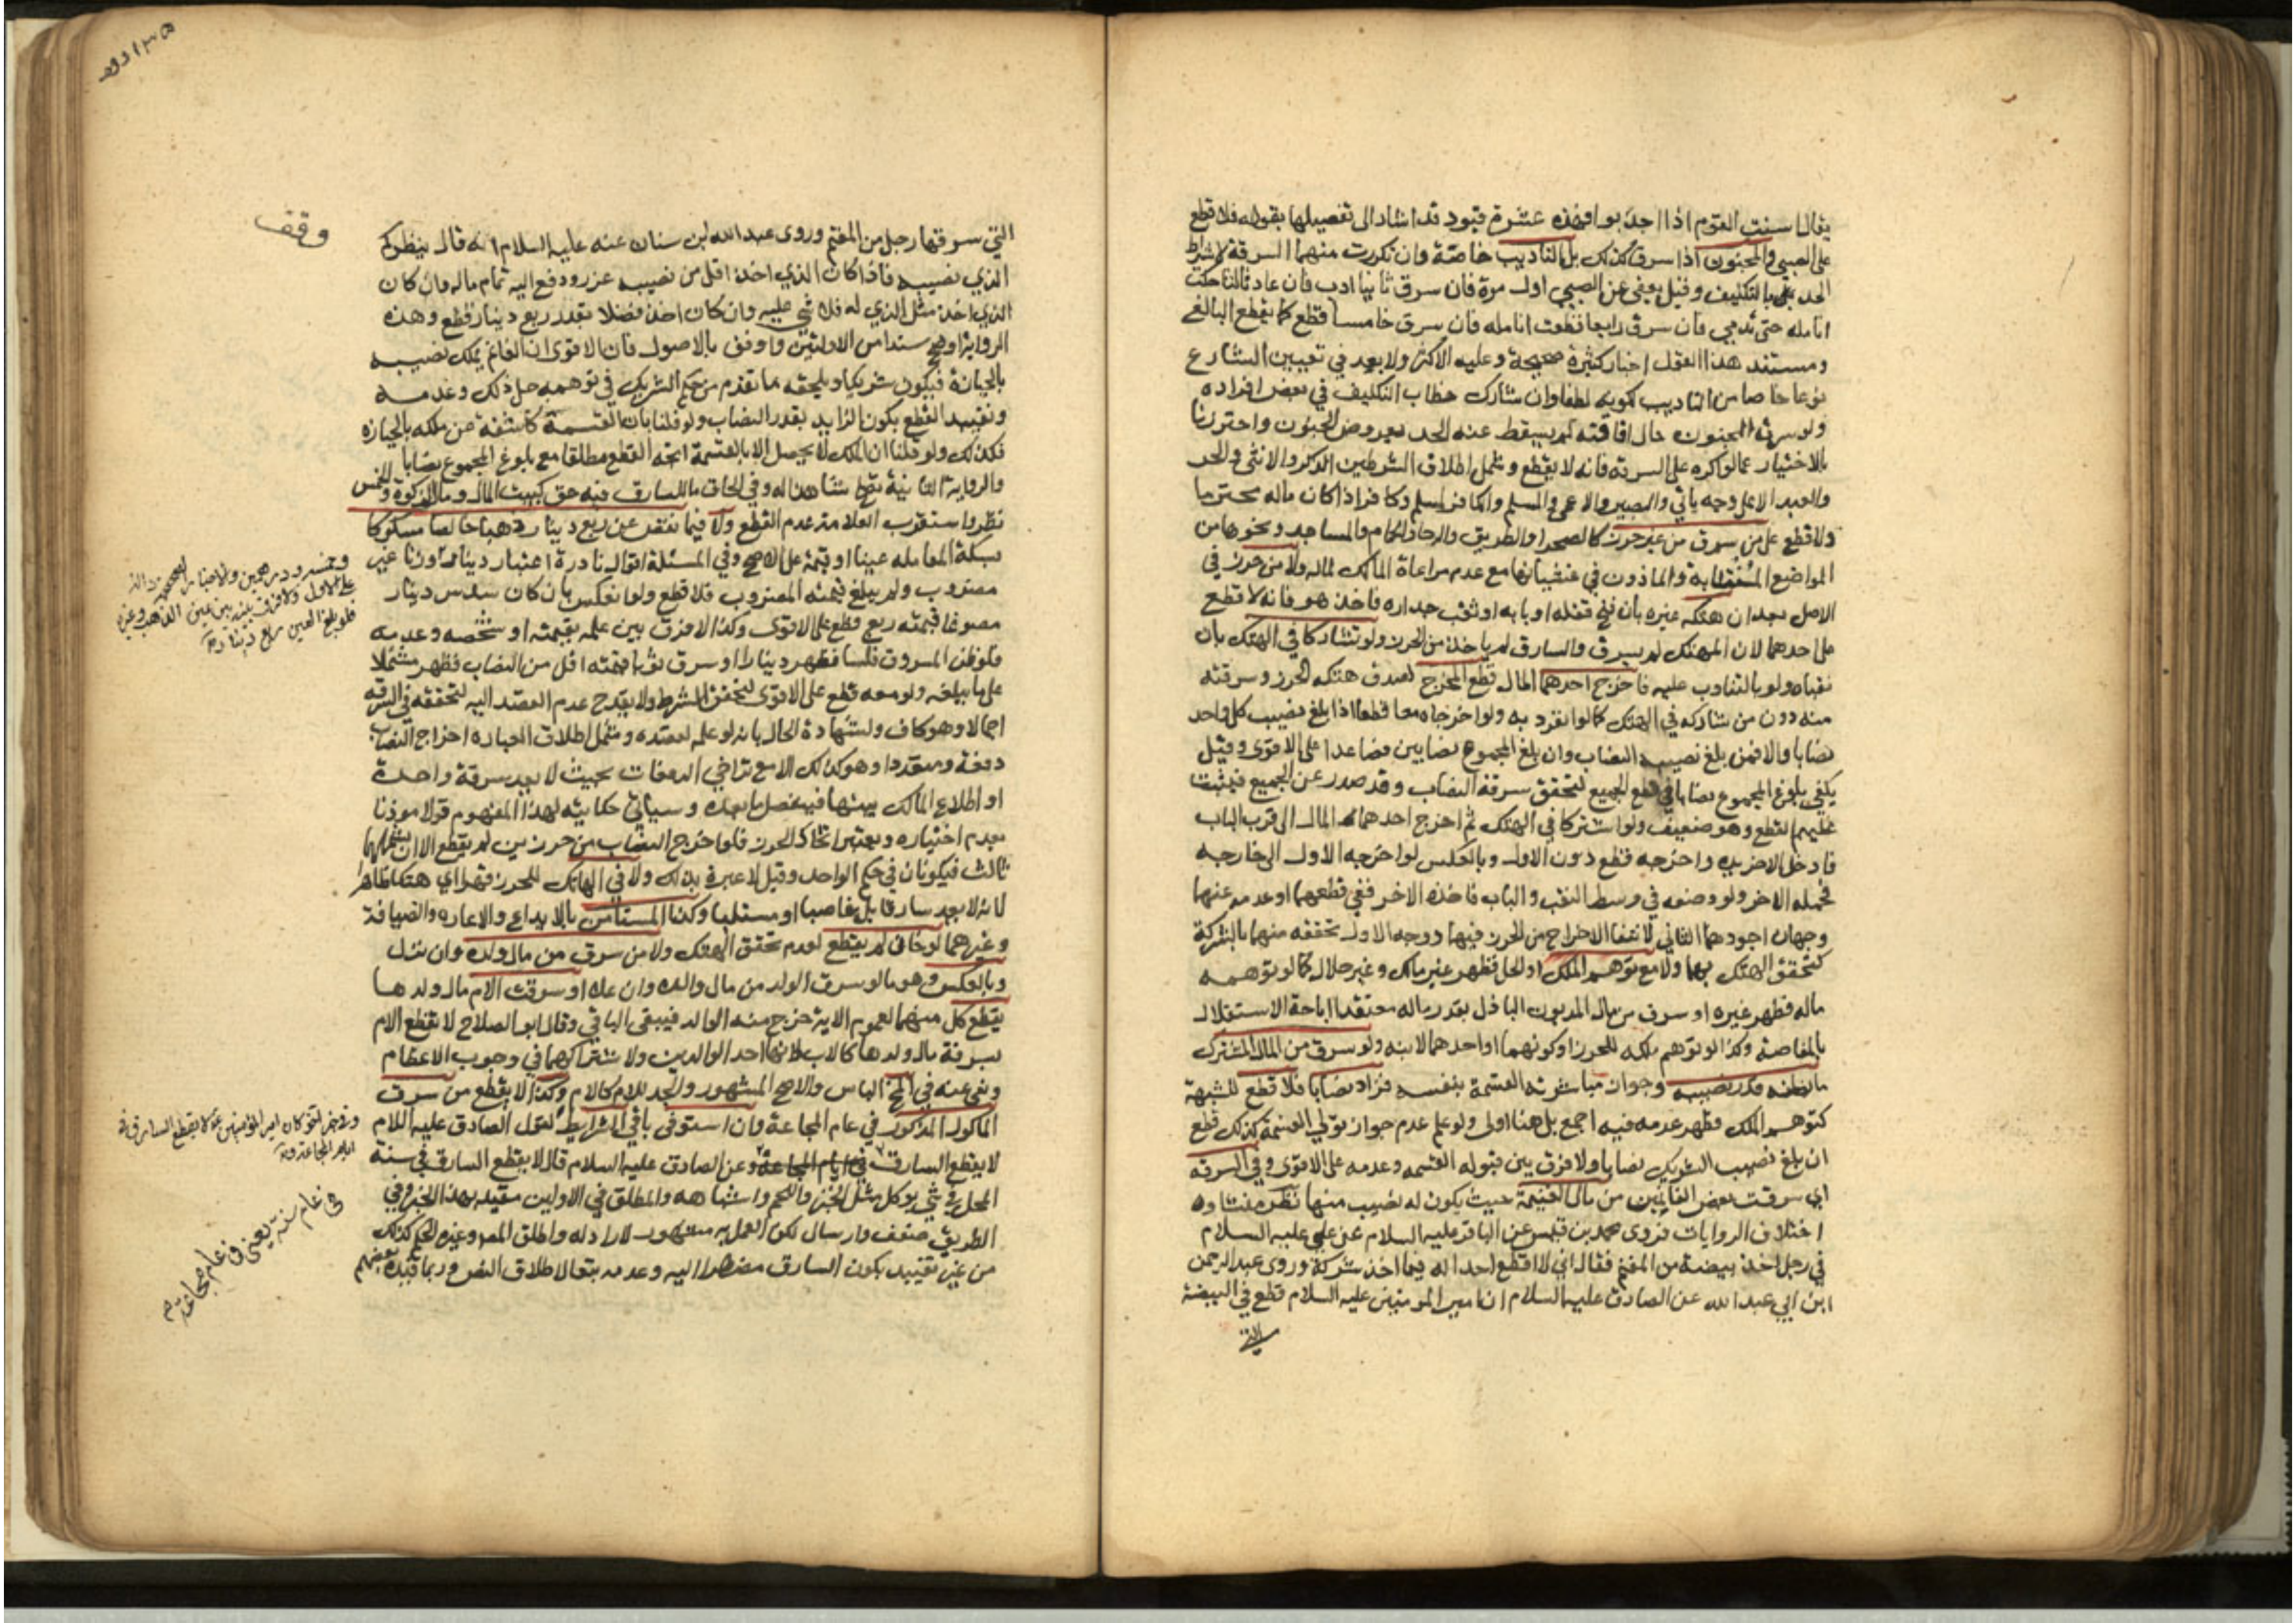 يقال اسنت القوم اذا اجدبوا فهذه عشرة قيود قد اشار الى تفصيلها بقوله فلا قطع
على الصبي والمجنون اذا سرقا كذلك بل التاديب خاصة وان تكررت منهما السرقة لاشتراط
الحد بالتكليف وقيل يعفى عن الصبي اول مرة فان سرق ثانيا ادب فان عاد ثالثا حكت
انامله حتى تدمي فان سرق رابعا قطعت انامله فان سرق خامسا قطع كما يقطع البالغ
ومستند هذا القول اخبار كثيرة صحيحة وعليه الاكثر ولا بعد في تعيين الشارع
نوعا خاصا من التاديب لكونه لطفا وان شارك خطاب التكليف في بعض افراده
ولو سرق المجنون حال افاقته لم يسقط عنه الحد بعروض الجنون واحترزنا
بالاختيار عما لو اكره على السرقة فانه لا يقطع وشمل اطلاق الشرطين الذكر والانثى والحر
والعبد الا على وجه ياتي والبصير والاعمى والمسلم والكافر لمسلم وكافر اذا كان ماله محترما
ولا قطع على من سرق من غير حرز كالصحراء والطريق والرحا والحمام والمساجد ونحوها من
المواضع المنتابة والماذون في غشيانها مع عدم مراعاة المالك لماله ولا من حرز في
الاصل بعد ان هتكه غيره بان فتح قفله او بابه او نقب جداره فاخذ هو فانه لا قطع
على احدهما لان المهتك لم يسرق والسارق لم ياخذ من الحرز ولو تشاركا في الهتك بان
نقباه ولو بالتناوب عليه فاخرج احدهما المال قطع المخرج لصدق هتكه الحرز وسرقته
منه دون من شاركه في الهتك كما لو انفرد به ولو اخرجاه معا قطعا اذا بلغ نصيب كل واحد
نصابا والا فمن بلغ نصيبه النصاب وان بلغ المجموع نصابين فصاعدا على الاقوى وقيل
يكفي بلوغ المجموع نصابا في قطع الجميع لتحقق سرقة النصاب وقد صدر عن الجميع فيثبت
عليهم القطع وهو ضعيف ولو اشتركا في الهتك ثم اخرج احدهما المال الى قرب الباب
فادخل الاخر يده واخرجه قطع دون الاول وبالعكس لو اخرجه الاول الى خارجه
فحمله الاخر ولو وضعه في وسط النقب والباب فاخذه الاخر ففي قطعهما او عدمه عنهما
وجهان اجودهما الثاني لانتفاء الاخراج من الحرز فيهما ووجه الاول تحققه منهما بالشركة
كتحقق الهتك بهما ولا مع توهم الملك او الحل فظهر غير مالك وغير حلال كما لو توهمه
ماله فظهر غيره او سرق من مال المديون الباذل بقدر ماله معتقدا اباحة الاستقلال
بالمقاصة وكذا لو توهم ملكه للحرز او كونهما او احدهما لابنه ولو سرق من المال المشترك
ما يظنه قدر نصيبه وجواز مباشرته القسمة بنفسه فزاد نصابا فلا قطع للشبهة
كتوهم الملك فظهر عدمه فيه اجمع بل هنا اولى ولو علم عدم جواز تولي القسمة كذلك قطع
ان بلغ نصيب الشريك نصابا ولا فرق بين قبوله القسمه وعدمه على الاقوى وفي السرقه
اي سرقت بعض الغانمين من مال الغنيمة حيث يكون له نصيب منها نظر منشاوه
اختلاف الروايات فروى محمد بن قيس عن الباقر عليه السلام عن علي عليه السلام
في رجل اخذ بيضة من المغنم فقال اني لا اقطع احدا له فيما اخذ شركة وروى عبد الرحمن
ابن ابي عبد الله عن الصادق عليه السلام ان امير المومنين عليه السلام قطع في البيضة
التي
وقف
التي سرقها رجل من المغنم وروى عبد الله بن سنان عنه عليه السلام انه قال ينظر كم
الذي نصيبه فاذا كان الذي اخذ اقل من نصيبه عزر ودفع اليه تمام ماله وان كان
الذي اخذ مثل الذي له فلا شي عليه وان كان اخذ فضلا بقدر ربع دينار قطع وهذه
الرواية اوضح سندا من الاوليتين واوفق بالاصول فان الاقوى ان الغانم يملك نصيبه
بالحيازة فيكون شريكا ويلحقه ما تقدم من حكم الشريك في توهمه حل ذلك وعدمه
وتقييد القطع بكون الزايد بقدر النصاب ولو قلنا بان القسمة كاشفة عن ملكه بالحيازه
فكذلك ولو قلنا ان الملك لا يحصل الا بالقسمة اتجه القطع مطلقا مع بلوغ المجموع نصابا
والرواية الثانية تصلح شاهدا له وفي الحاق ما للسارق فيه حق كبيت المال ومال الزكوة والخمس
نظر واستقرب العلامة عدم القطع ولا فيما نقص عن ربع دينار ذهبا خالصا مسكوكا
بسكة المعامله عينا او قيمة على الاصح وفي المسئلة اقوال نادرة اعتبار دينار وزنا غير
مضروب ولم يبلغ قيمته المضروب فلا قطع ولو انعكس بان كان سدس دينار
مصوغا قيمته ربع قطع على الاقوى وكذا لا فرق بين علمه بقيمته او شخصه وعدمه
فلو ظن المسروق فلسا فظهر دينارا او سرق ثوبا قيمته اقل من النصاب فظهر مشتملا
على ما يبلغه ولو معه قطع على الاقوى لتحقق الشرط ولا يقدح عدم القصد اليه لتحققه في السرقه
اجمالا وهو كاف ولشهادة الحال بانه لو علم لقصده وشمل اطلاق العباره اخراج النصاب
دفعة ومتعددا وهو كذلك الا مع تراخي الدفعات بحيث لا يعد سرقة واحدة
او اطلاع المالك بينهما فينفصل ما بعده وسياتي حكايته لهذا المفهوم قولا موذنا
بعدم اختياره ويعتبر اتحاد الحرز فلو اخرج النصاب من حرزين لم يقطع الا ان يشملهما
ثالث فيكونان في حكم الواحد وقيل لا عبرة بذلك ولا في الهاتك للحرز قهرا اي هتكا ظاهرا
لانه لا يعد سارقا بل غاصبا او مستلبا وكذا المستامن بالايداع والاعاره والضيافة
وغيرهما لو خان لم يقطع لعدم تحقق الهتك ولا من سرق من مال ولده وان نزل
وبالعكس وهو ما لو سرق الولد من مال والده وان علا او سرقت الام مال ولدها
يقطع كل منهما لعموم الاية خرج منه الوالد فيبقى الباقي وقال ابو الصلاح لا تقطع الام
بسرقة مال ولدها كالاب لانها احد الوالدين ولاشتراكهما في وجوب الاعظام
ونفى عنه في المخ الباس والاصح المشهور والجد للام كالام وكذا لا يقطع من سرق
الماكول المذكور في عام المجاعة وان استوفى باقي الشرايط لقول الصادق عليه السلام
لا يقطع السارق في ايام المجاعة وعن الصادق عليه السلام قال لا يقطع السارق في سنة
المحل في شي يوكل مثل الخبز واللحم واشباهه والمطلق في الاولين مقيد بهذا الخبر وفي
الطريق ضعف وارسال لكن العمل به مشهور لا راد له واطلق المص وغيره الحكم كذلك
من غير تقييد بكون السارق مضطرا اليه وعدمه تبعا لاطلاق النص وربما قيده بعضهم
وبخمسه ودرهمين والاخبار الصحيحه دالة
على الاول ولا فرق فيه بين عين الذهب وغيره
فلو بلغ العين ربع دينار
وفي خبر اخر كان امير المؤمنين ع لا يقطع السارق في
ايام المجاعة
في عام سنة يعني في عام مجاعة